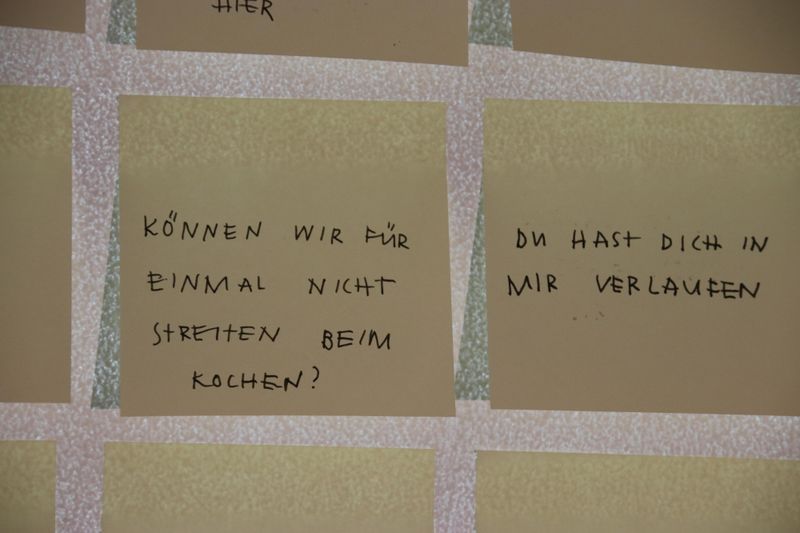 HIER
KÖNNEN WIR FÜR
EINMAL NICHT
STREITEN BEIM
KOCHEN?
DU HAST DICH IN
MIR VERLAUFEN